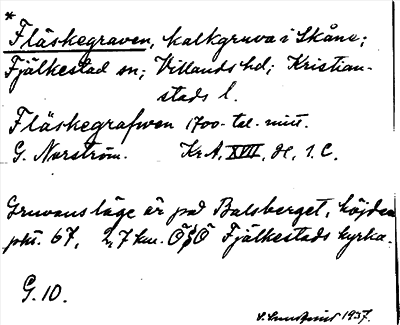 *
Fläskegraven, kalkgruva i Skåne;
Fjälkestad sn; Villands hd; Kristian-
stads l.
Fläskegrafwen 1700-tal. mitt.
G. Norström. Kr.A, XVII, H, 1.C.
Gruvans läge är på Balsberget, höjden
pkt. 67, 2,7 km. ÖSÖ Fjälkestads kyrka.
G. 10.
1937.